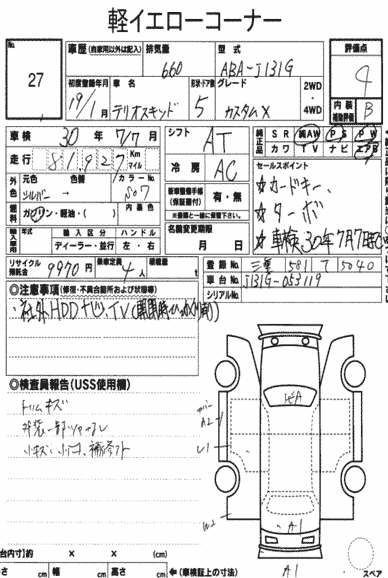 軽イエローコーナー
No.
27
車歴 (自家用以外は記入) 排気量 型式
660 ABA-J131G
評価点
4
初度登録年月 車名 形状・ドア数 グレード
19/1月 テリオスキッド 5 カスタムX
2WD
4WD
内装補助評価 B
車検 30年 7/7月
シフト AT
純正品 SR 純AW PS PW
カワ TV ナビ エアB
走行 81,927 Km マイル
冷房 AC
セールスポイント
☆カードキー、
☆ターボ
☆車検30年7月7日
外色 元色 色替 カラーNo.
シルバー → S07
燃料 ガソリン・軽油・( ) 内装色
新車整備手帳(保証書付) 有・無
※点検記録簿も一緒にご使用下さい。
輸入車用 年式 輸入区分 ハンドル
ディーラー・並行 左・右
名義変更期限
月 日
リサイクル預託金 9970円 乗車定員 4人 積載量 t
登録No. 三重 581 う 5040
車台No. J131G-053119
シリアルNo.
◎注意事項 (修復・不具合箇所および状態等)
・社外HDDナビ、TV
◎検査員報告 (USS使用欄)
トリムキズ
外装一部ツヤクレ
小キズ、小凹、補修アト
A2
U1
W2
A1
A1
台内寸)約 × × (cm)
高さ cm 幅 cm 高さ cm ←(車検証上の寸法)
スペア